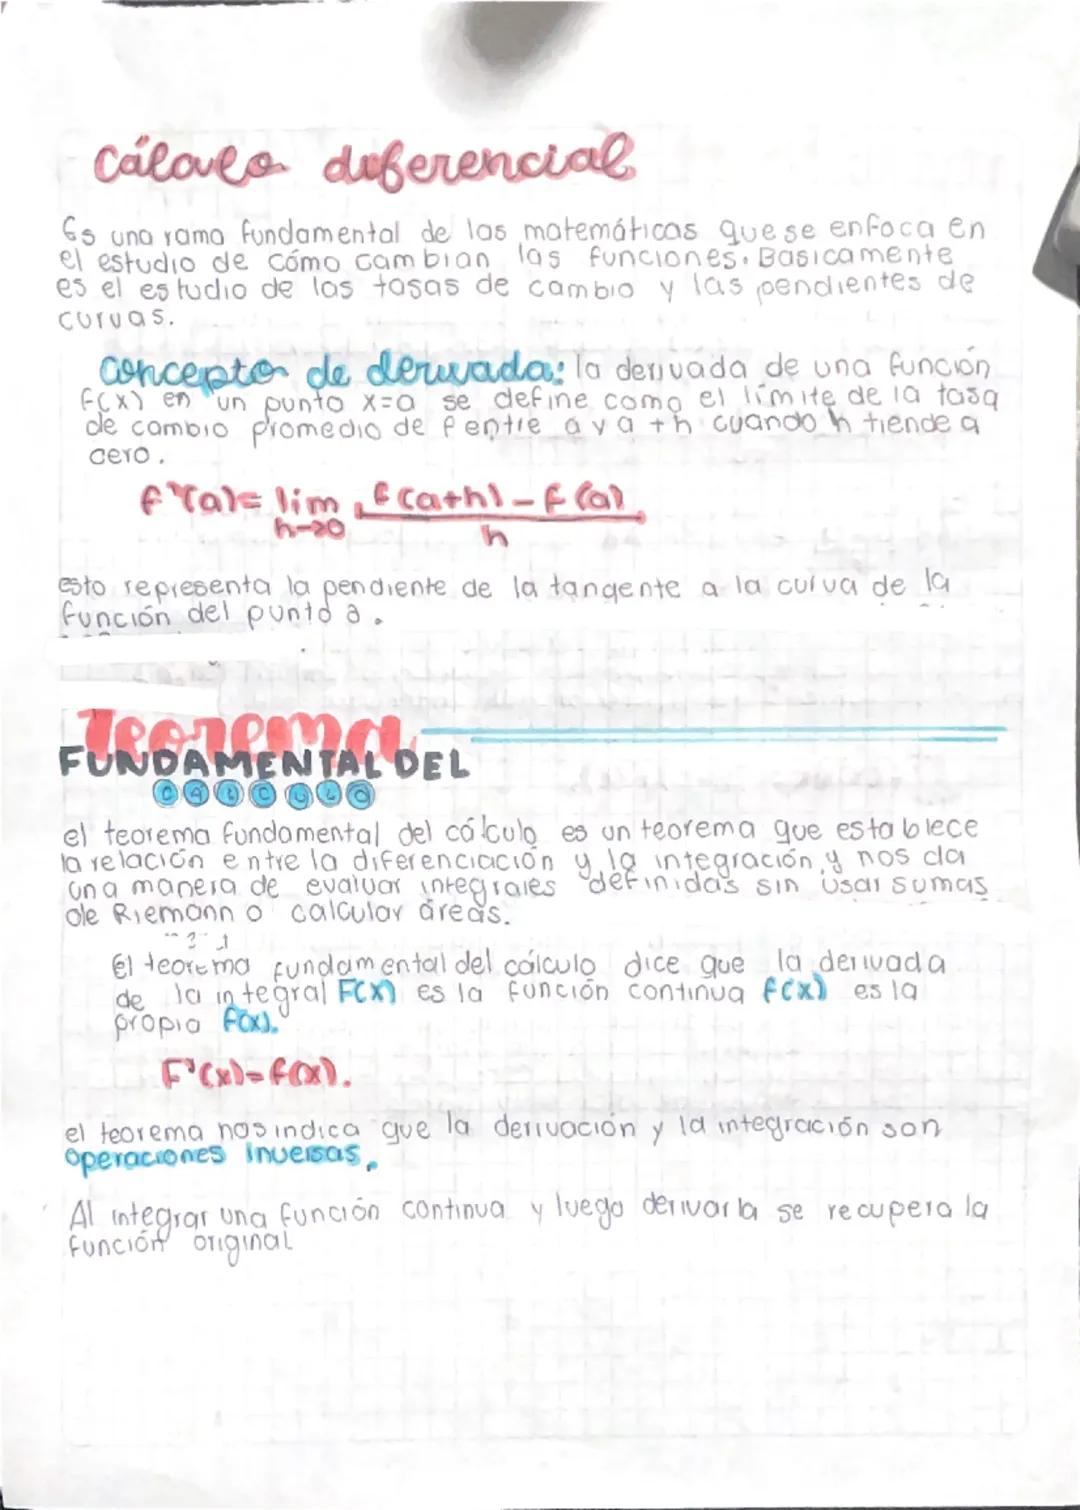 Cálculo diferencial
Es una rama fundamental de las matemáticas que se enfoca en
el estudio de cómo cambian las funciones. Basicamente
es el estudio de las tasas de cambio y las pendientes de
curvas.
Concepto de derivada: la derivada de una función
f(x) en un punto x=a se define como el límite de la tasa
de cambio promedio de f entre a y a + h cuando h tiende a
cero.
f'(a)= lim f(a+h) - f(a)
h→0 h
esto representa la pendiente de la tangente a la curva de la
función del punto a.
Teorema
FUNDAMENTAL DEL
CALCULO
el teorema fundamental del cálculo es un teorema que establece
la relación entre la diferenciación y la integración, y nos da
una manera de evaluar integrales definidas sin usar sumas
de Riemann o calcular áreas.
El teorema fundamental del cálculo dice que la derivada
de la integral F(x) es la función continua f(x) es la
propia f(x).
F'(x)=f(x).
el teorema nos indica que la derivación y la integración son
operaciones inversas.
Al integrar una función continua y luego derivarla se recupera la
función original